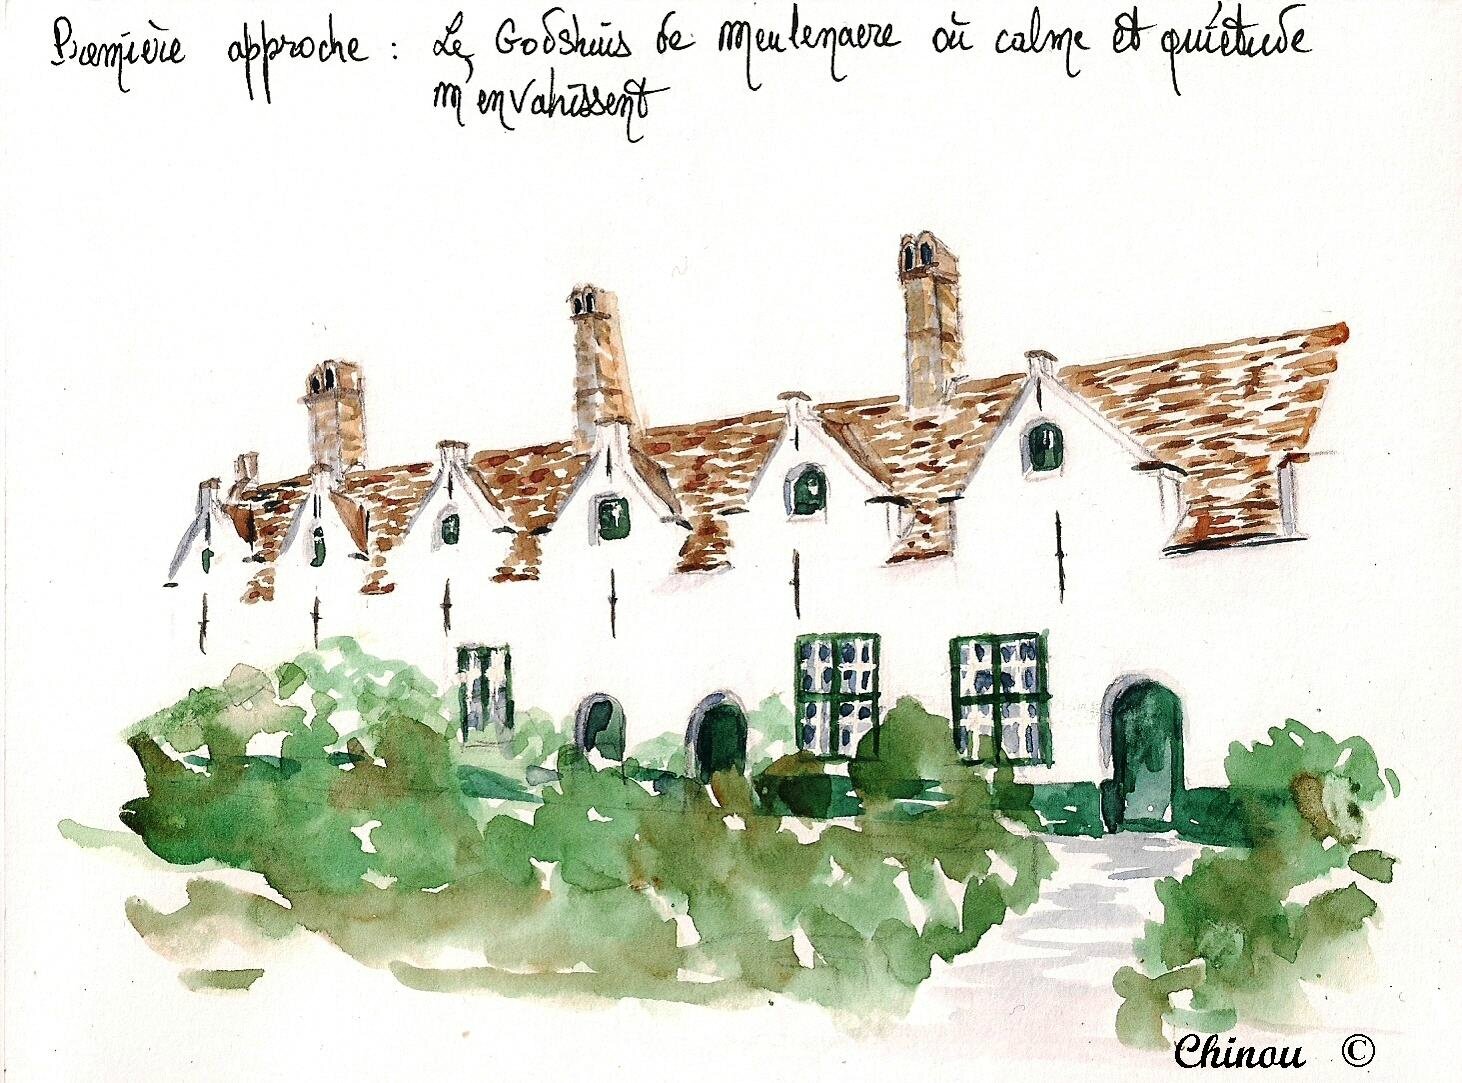 Première approche : Le Godshuis de Meulenaere où calme et quiétude
m'envahissent
Chinou ©